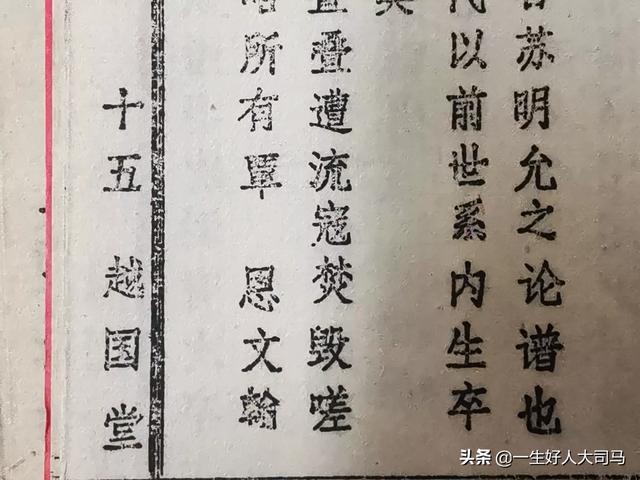 苏明允之论谱也
以前世系内生卒
叠遭流寇焚毁嗟
所有覃 恩文翰
十五 越国堂
头条 @一生好人大司马